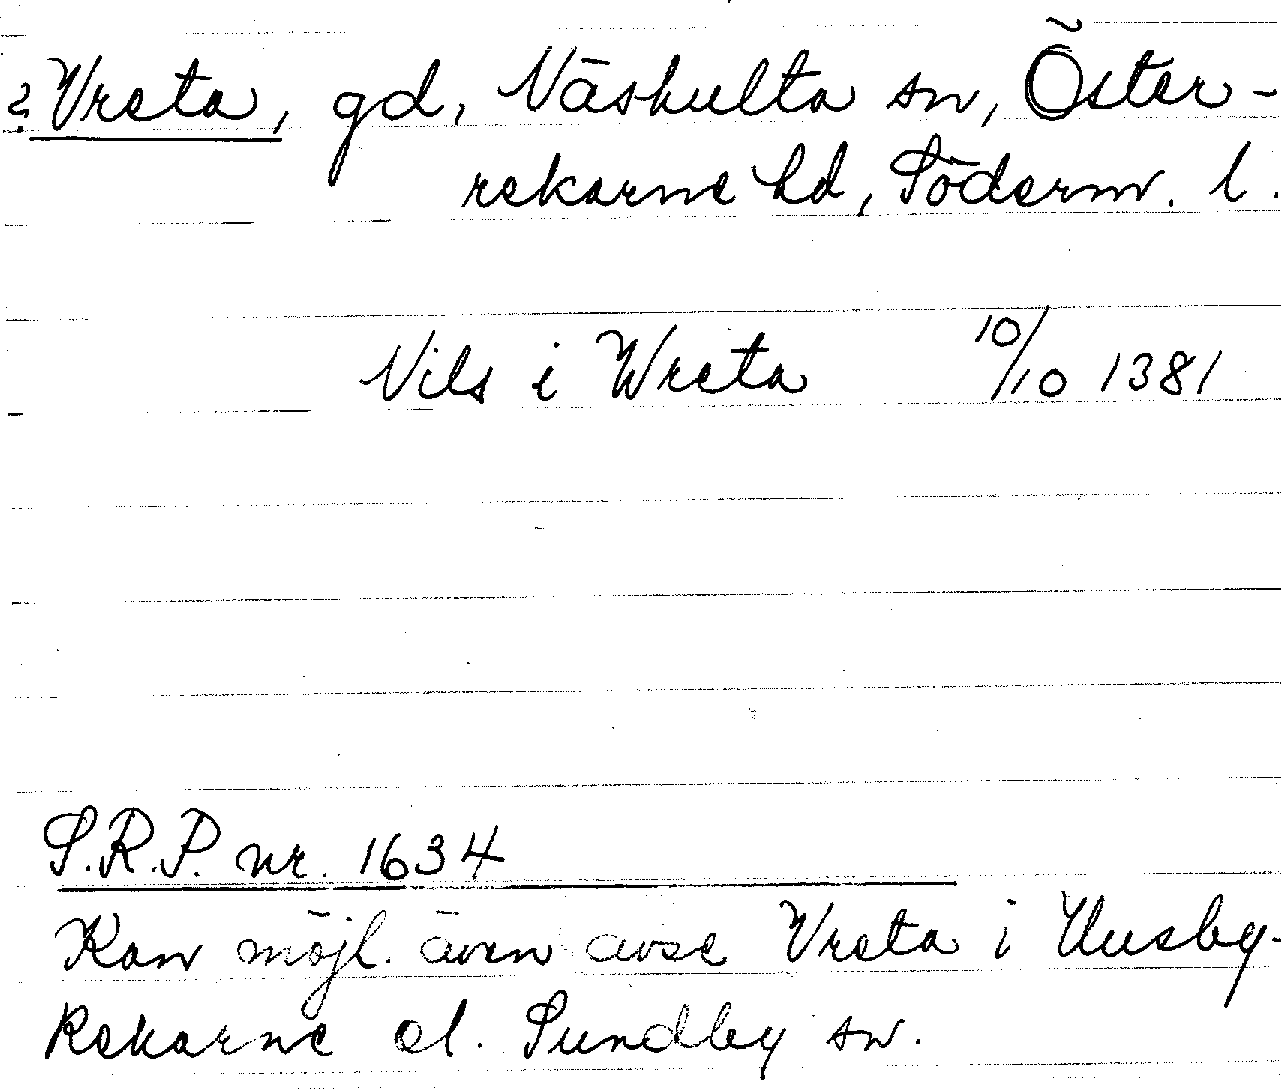 ? Vreta, gd, Näshulta sn, Öster-
rekarne hd, Söderm. l.
Nils i Wreta 10/10 1381
S.R.P. nr. 1634
Kan möjl. även avse Vreta i Husby-
Rekarne el. Sundby sn.